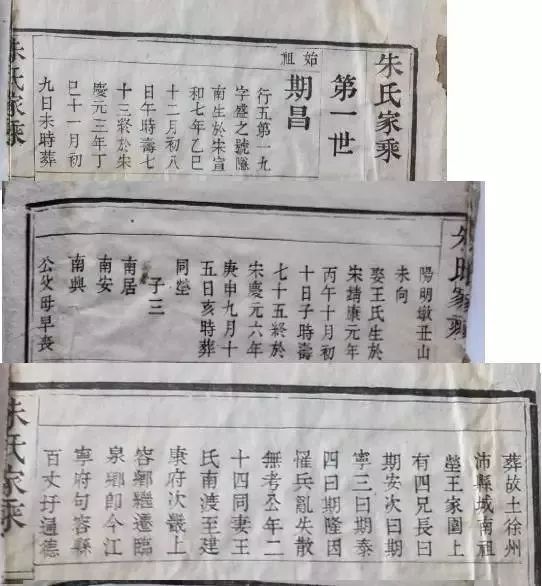 朱氏家乘
第一世
始祖
期昌
行五第一九
字盛之號隱
南生於宋宣
和七年乙巳
十二月初八
日午時壽七
十三終於宋
慶元三年丁
巳十一月初
九日未時葬
朱氏家乘
朱氏家乘
陽明墩丑山
未向
娶王氏生於
宋靖康元年
丙午十月初
十日子時壽
七十五終於
宋慶元六年
庚申九月十
五日亥時葬
同塋
子三
南居
南安
南興
公父母早喪
葬故土徐州
沛縣城南祖
塋王家園上
有四兄長曰
期安次曰期
寧三曰期泰
四曰期隆因
罹兵亂失散
無考公年二
十四同妻王
氏南渡至建
康府次畿上
容鄉繼遷臨
泉鄉即今江
寧府句容縣
百丈圩通德
朱氏家乘